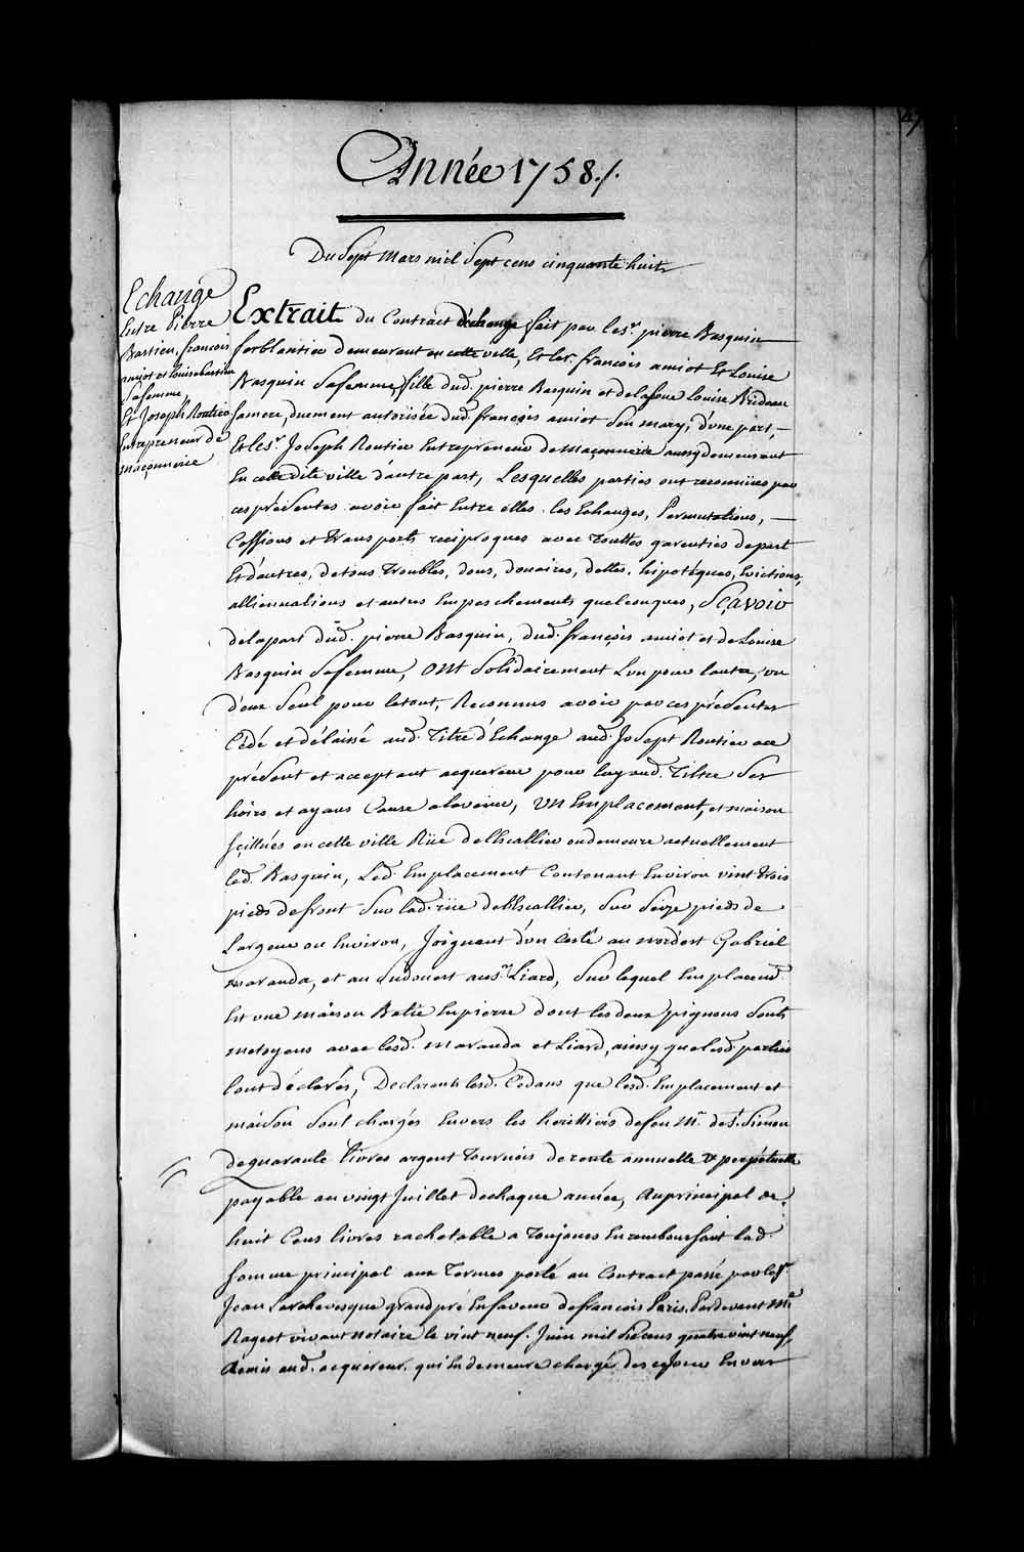 47
Année 1758./.
Du Sept Mars mil Sept cens cinquante huit
Echange
Entre Pierre
Bastien, francois
amiot et louise Bastien
Safemme,
Et Joseph Routier
Entrepreneur de
maçonnerie
Extrait du Contract déchange fait par les.r pierre Basquin
ferblantier demeurant en cette ville, Et les.r francois amiot Et Louise
Basquin Safemme, fille dud. pierre Basquin et de la feue Louise Brideau
Samere, duement autorisée dud. françois amiot Son mary, d'une part,
Et les.r Joseph Routier Entrepreneur de Maçonnerie aussy demeurant
En cette dite ville d'autre part, Lesquelles parties ont reconnües par
ces présentes avoir fait Entre elles les Echanges, Permutations,
Cessions et transports reciproques avec Touttes garenties de part
Et d'autres, de tous Troubles, dons, doüaires, dettes, hipotéques, Evictions,
alliennations et autres Empeschements quelconques, Sçavoir
de la part dud. pierre Basquin, dud. françois amiot et de Louise
Basquin Safemme, ont Solidairement L'un pour l'autre, un
d'eux Seul pour le tout, Reconnus avoir par ces présentes
Cédé et délaissé aud. Titre d'Echange aud. Joseph Routier ace
présent et acceptant acquereur pour luy aud. Titre Ses
hoirs et ayans Cause alavenir, un Emplacement, et maison
scitüés en cette ville Rüe del'Escallier ou demeure actuellement
led. Basquin, Led. Emplacement Contenant Environ vint trois
pieds de front Sur lad. rüe del'Escallier, Sur Seize pieds de
Largeur ou Environ, Joignant d'un Costé au nordest Gabriel
maranda, et au Sudouest aus.r Liard, Sur lequel Emplacem.t
Est une maison Batie En pierre dont les deux pignons Sont
metoyens avec lesd. maranda et Liard, ainsy que lesd. parties
l'ont déclarés, Declarants lesd. Cedans que lesd. Emplacement et
maison Sont chargés Envers les heritiers de feu M.r de S.t Simon
de quarante livres argent Tournois de rente annuelle et perpétuelle
payable au vingt Juillet de chaque année, Au principal de
huit Cens livres rachetable a Toujours En remboursant lad.
Somme principal aux Termes porté au Contract passé par les.r
Jean Larchevesque grandpré En faveur de francois Paris, Pardevant M.e
Rageot vivant notaire le vint neuf Juin mil Six cens quatre vint neuf,
Remis aud. acquereur, qui En demeure chargé des ce jour Envers